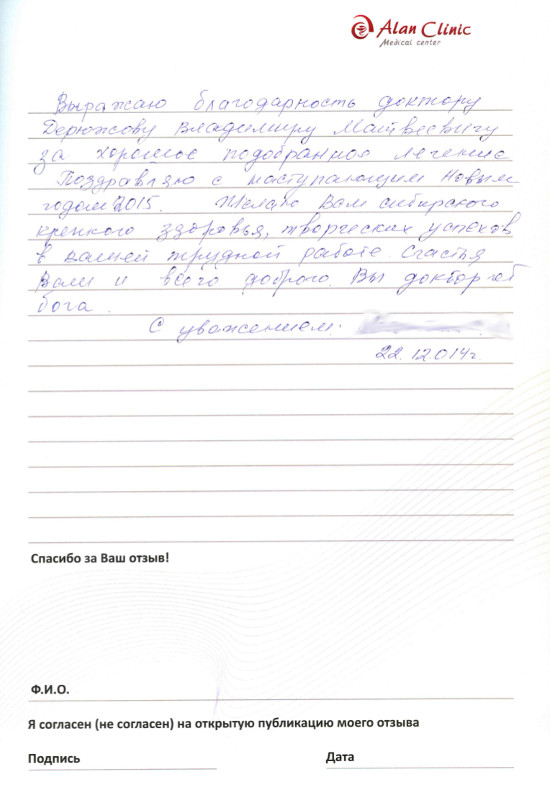 Alan Clinic
Medical center
Выражаю благодарность доктору
Дерюжсову Владимиру Матвеевичу
за хорошое подобранное лечение
Поздравляю с наступающим Новым
годом 2015. Желаю Вам сибирского
крепкого здоровья, творческих успехов
в вашей трудной работе. Счастья
Вам и всего доброго. Вы доктор от
бога.
С уважением:
22.12.014г.
Спасибо за Ваш отзыв!
Ф.И.О.
Я согласен (не согласен) на открытую публикацию моего отзыва
Подпись Дата